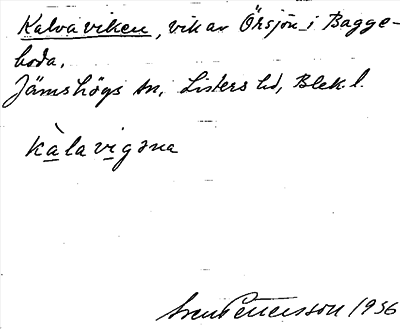 Kalvaviken, vik av Örsjön i Bagge-
boda.
Jämshögs sn, Listers hd, Blek. l.
kàlavigəna
Sven Pettersson 1936